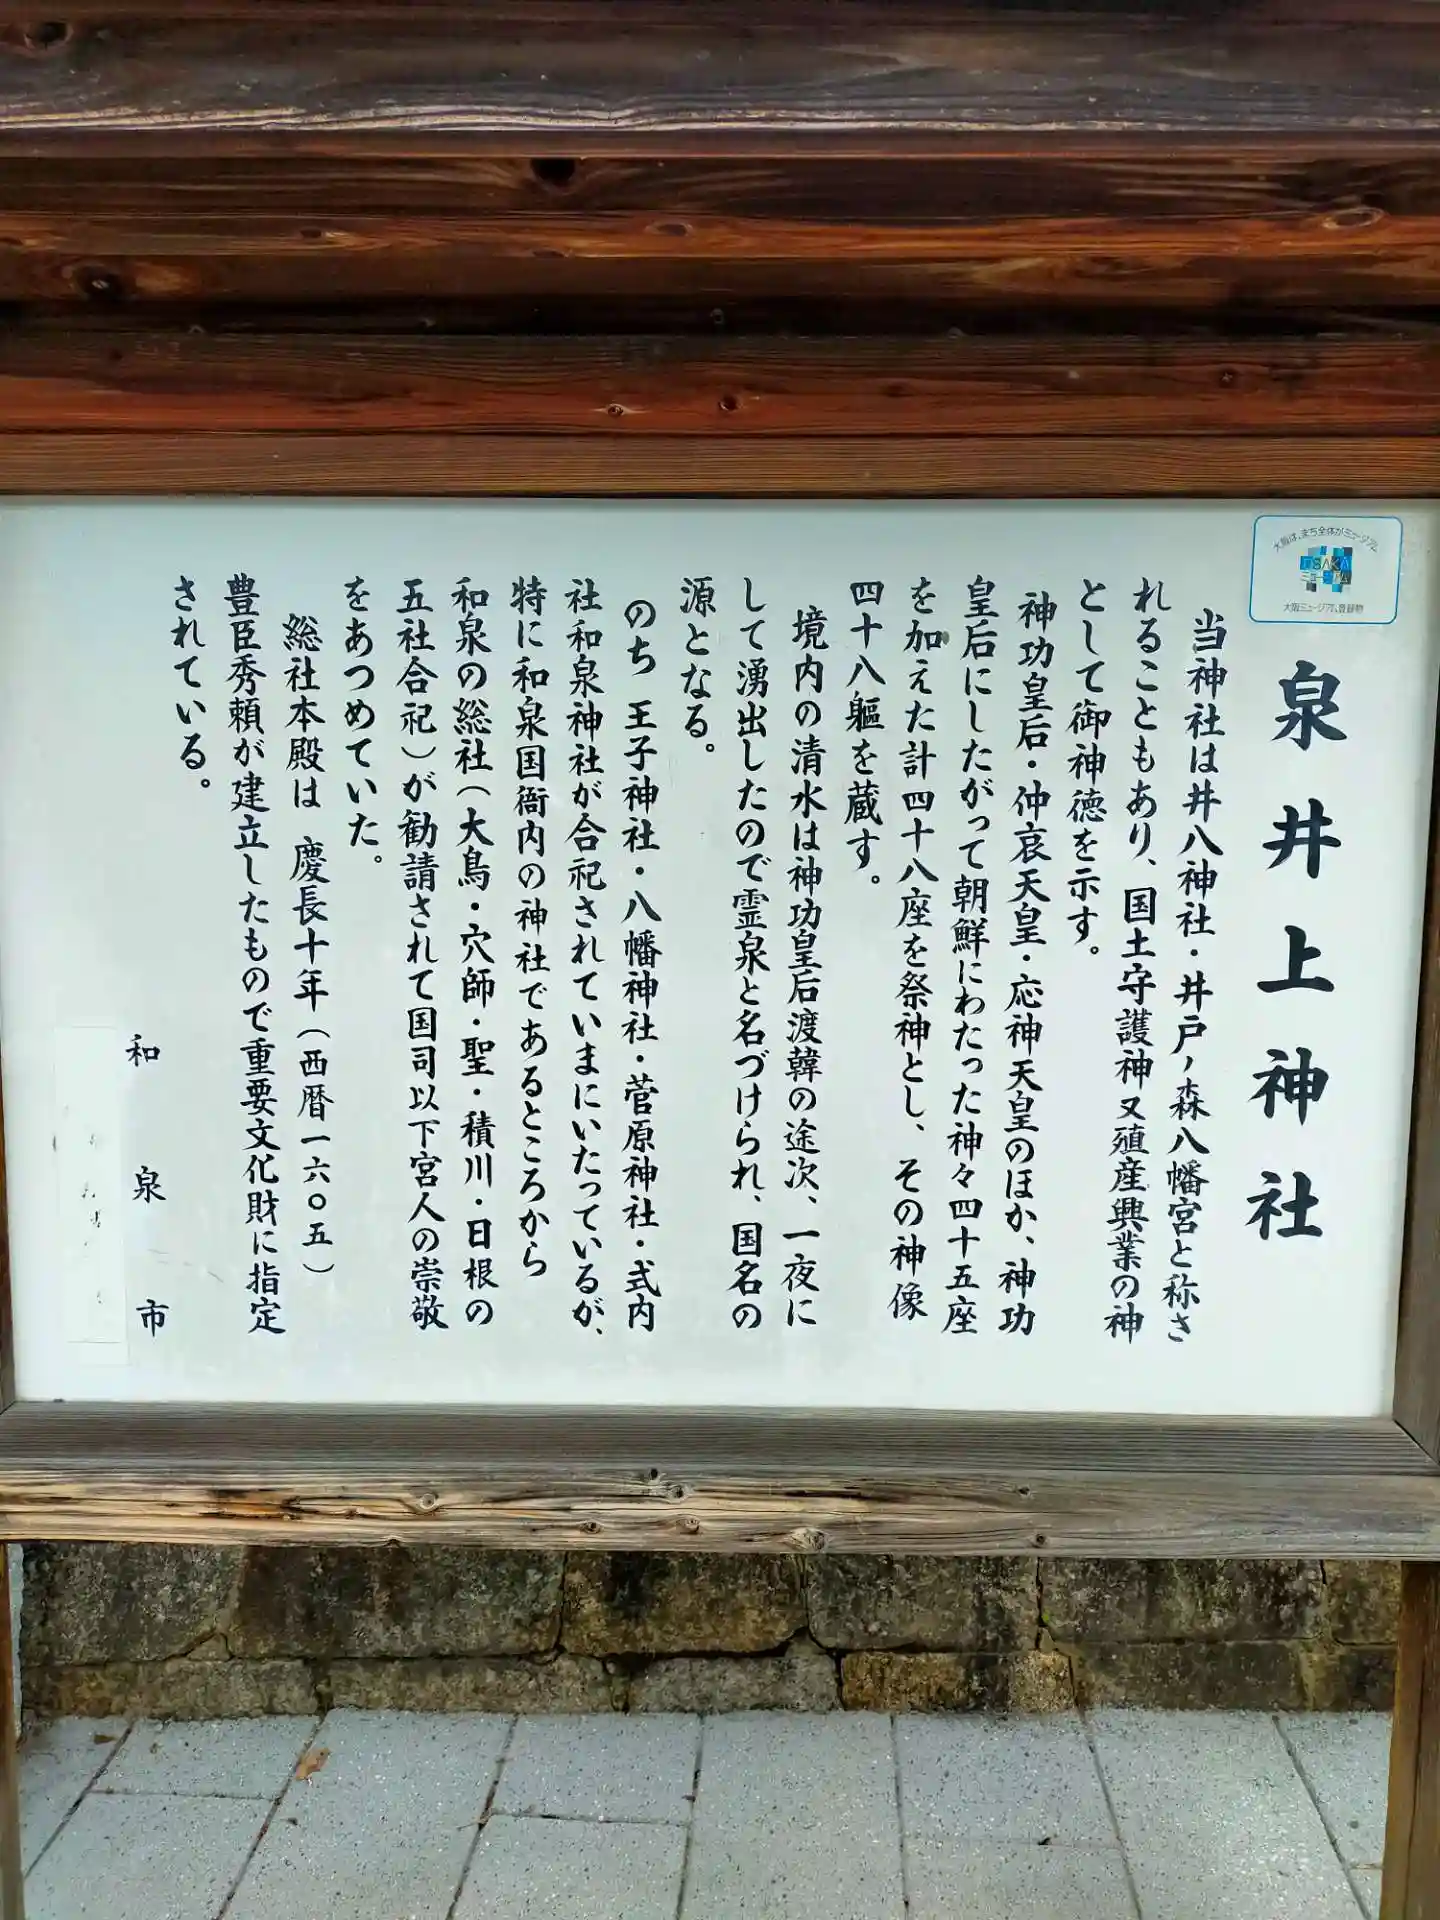 泉井上神社
当神社は井八神社・井戸ノ森八幡宮と称さ
れることもあり、国土守護神又殖産興業の神
として御神徳を示す。
神功皇后・仲哀天皇・応神天皇のほか、神功
皇后にしたがって朝鮮にわたった神々四十五座
を加えた計四十八座を祭神とし、その神像
四十八軀を蔵す。
境内の清水は神功皇后渡韓の途次、一夜に
して湧出したので霊泉と名づけられ、国名の
源となる。
のち 王子神社・八幡神社・菅原神社・式内
社和泉神社が合祀されていまにいたっているが、
特に和泉国衙内の神社であるところから
和泉の総社（大鳥・穴師・聖・積川・日根の
五社合祀）が勧請されて国司以下宮人の崇敬
をあつめていた。
総社本殿は 慶長十年（西暦一六〇五）
豊臣秀頼が建立したもので重要文化財に指定
されている。
和泉市
大阪は、まち全体がミュージアム
OSAKA
ミュージアム
大阪ミュージアム登録物